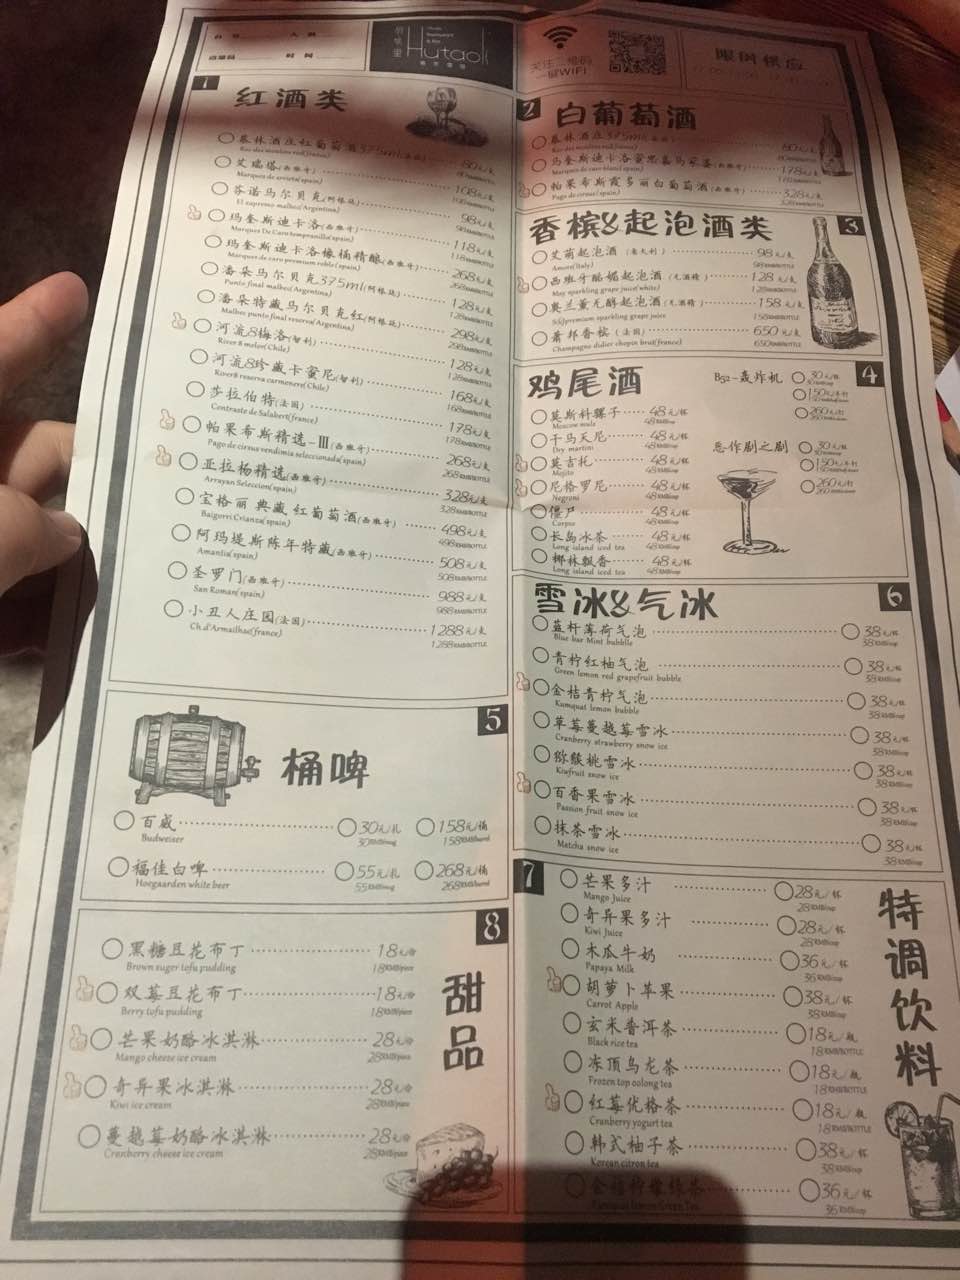 Hutaoli
关注二维码
一键WIFI
限时供应
1
红酒类
慕林酒庄红葡萄酒375ml
Roc des moulins red(france)
艾瑞塔(西班牙) 108元/支
Marques de arvieta(spain)
芬诺马尔贝克(阿根廷) 98元/支
El supremo malbec(Argentina)
玛奎斯迪卡洛(西班牙) 118元/支
Marques De Caro tempranillo(spain)
玛奎斯迪卡洛橡桶精酿(西班牙) 268元/支
Marques de caro premium roble(spain)
潘朵马尔贝克375ml(阿根廷) 128元/支
Punto final malbec(Argentina) 128RMB/BOTTLE
潘朵特藏马尔贝克红(阿根廷) 298元/支
Malbec punto final reserva(Argentina) 298RMB/BOTTLE
河流8梅洛(智利) 128元/支
River 8 melot(Chile) 128RMB/BOTTLE
河流8珍藏卡蜜尼(智利) 168元/支
River8 reserva carmenere(Chile) 168RMB/BOTTLE
莎拉伯特(法国) 178元/支
Contraste de Salabert(france) 178RMB/BOTTLE
帕果希斯精选-III(西班牙) 268元/支
Pago de cirsus vendimia seleccionada(spain) 268RMB/BOTTLE
亚拉杨精选(西班牙) 328元/支
Arrayan Seleccion(spain) 328RMB/BOTTLE
宝格丽 典藏 红葡萄酒(西班牙) 498元/支
Baigorri Crianza(spain) 498RMB/BOTTLE
阿玛提斯陈年特藏(西班牙) 508元/支
Amantis(spain) 508RMB/BOTTLE
圣罗门(西班牙) 988元/支
San Roman(spain) 988RMB/BOTTLE
小丑人庄园(法国) 1288元/支
Ch.d'Armailhac(france) 1288RMB/BOTTLE
2
白葡萄酒
慕林酒庄375ml 80元/支
Roc des moulins red(france)
马奎斯迪卡洛蜜思嘉马家婆(西班牙) 178元/支
Marques de caro blanc(spain)
帕果希斯霞多丽白葡萄酒(西班牙) 328元/支
Pago de cirsus(spain) 328RMB/BOTTLE
3
香槟&起泡酒类
艾萌起泡酒 (意大利) 98元/支
Amore(Italy) 98RMB/BOTTLE
西班牙酩媚起泡酒(无酒精) 128元/支
May sparkling grape juice(white) 128RMB/BOTTLE
奥兰薰无醇起泡酒(无酒精) 158元/支
premium sparkling grape juice 158RMB/BOTTLE
萧邦香槟 (法国) 650元/支
Champagne didier chopin brut(france) 650RMB/BOTTLE
4
鸡尾酒
莫斯科骡子 48元/杯
Moscow mule 48RMB/cup
干马天尼 48元/杯
Dry martini 48RMB/cup
莫吉托 48元/杯
Mojito 48RMB/cup
尼格罗尼 48元/杯
Negroni 48RMB/cup
僵尸 48元/杯
Corpse 48RMB/cup
长岛冰茶 48元/杯
Long island iced tea 48RMB/cup
椰林飘香 48元/杯
Long island iced tea 48RMB/cup
B52-轰炸机 30元/杯
150元/半打
260元/打
恶作剧之剧 30元/杯
150元/半打
260元/打
5
桶啤
百威 30元/扎 158元/桶
Budweiser 30RMB/mug 158RMB/barrel
福佳白啤 55元/扎 268元/桶
Hoegaarden white beer 55RMB/mug 268RMB/barrel
6
雪冰&气冰
蓝杆薄荷气泡 38元/杯
Blue bar Mint bubblle 38RMB/cup
青柠红柚气泡 38元/杯
Green lemon red grapefruit bubble 38RMB/cup
金桔青柠气泡 38元/杯
Kumquat lemon bubble 38RMB/cup
草莓蔓越莓雪冰 38元/杯
Cranberry strawberry snow ice 38RMB/cup
猕猴桃雪冰 38元/杯
Kiwifruit snow ice 38RMB/cup
百香果雪冰 38元/杯
Passion fruit snow ice 38RMB/cup
抹茶雪冰 38元/杯
Matcha snow ice 38RMB/cup
7
特调饮料
芒果多汁 28元/杯
Mango Juice 28RMB/cup
奇异果多汁 28元/杯
Kiwi Juice 28RMB/cup
木瓜牛奶 36元/杯
Papaya Milk 36RMB/cup
胡萝卜苹果 38元/杯
Carrot Apple 38RMB/cup
玄米普洱茶 18元/瓶
Black rice tea 18RMB/BOTTLE
冻顶乌龙茶 18元/瓶
Frozen top oolong tea 18RMB/BOTTLE
红莓优格茶 18元/瓶
Cranberry yogurt tea 18RMB/BOTTLE
韩式柚子茶 38元/杯
Korean citron tea 38RMB/cup
金桔柠檬绿茶 36元/杯
Kumquat lemon Green Tea 36RMB/cup
8
甜品
黑糖豆花布丁 18元/份
Brown suger tofu pudding 18RMB/piece
双莓豆花布丁 18元/份
Berry tofu pudding 18RMB/piece
芒果奶酪冰淇淋 28元/份
Mango cheese ice cream 28RMB/piece
奇异果冰淇淋 28元/份
Kiwi ice cream 28RMB/piece
蔓越莓奶酪冰淇淋 28元/份
Cranberry cheese ice cream 28RMB/piece